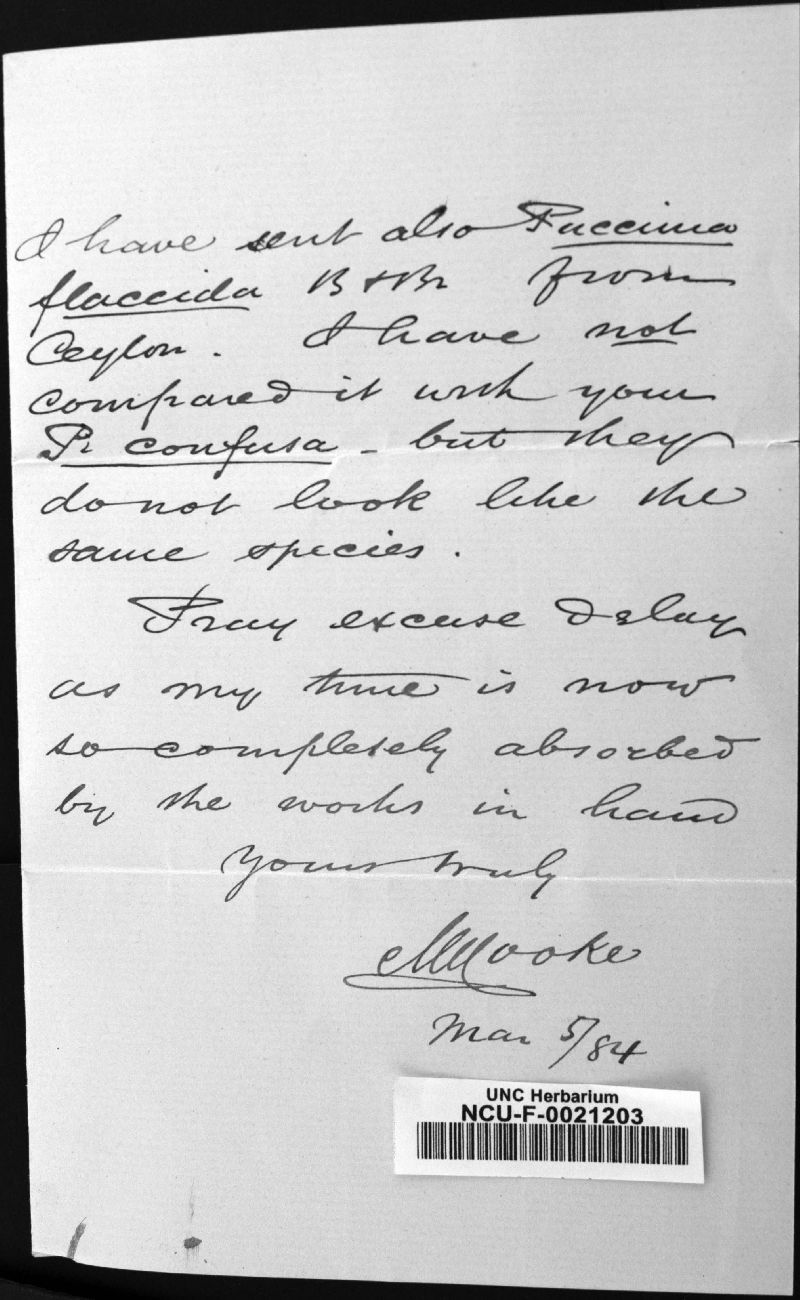 I have sent also Puccinia
flaccida B & Br from
Ceylon. I have not
compared it with your
P. confusa - but they
do not look like the
same species.
Pray excuse delay
as my time is now
so completely absorbed
by the works in hand
yours truly
M C Cooke
Mar 5/84
UNC Herbarium
NCU-F-0021203